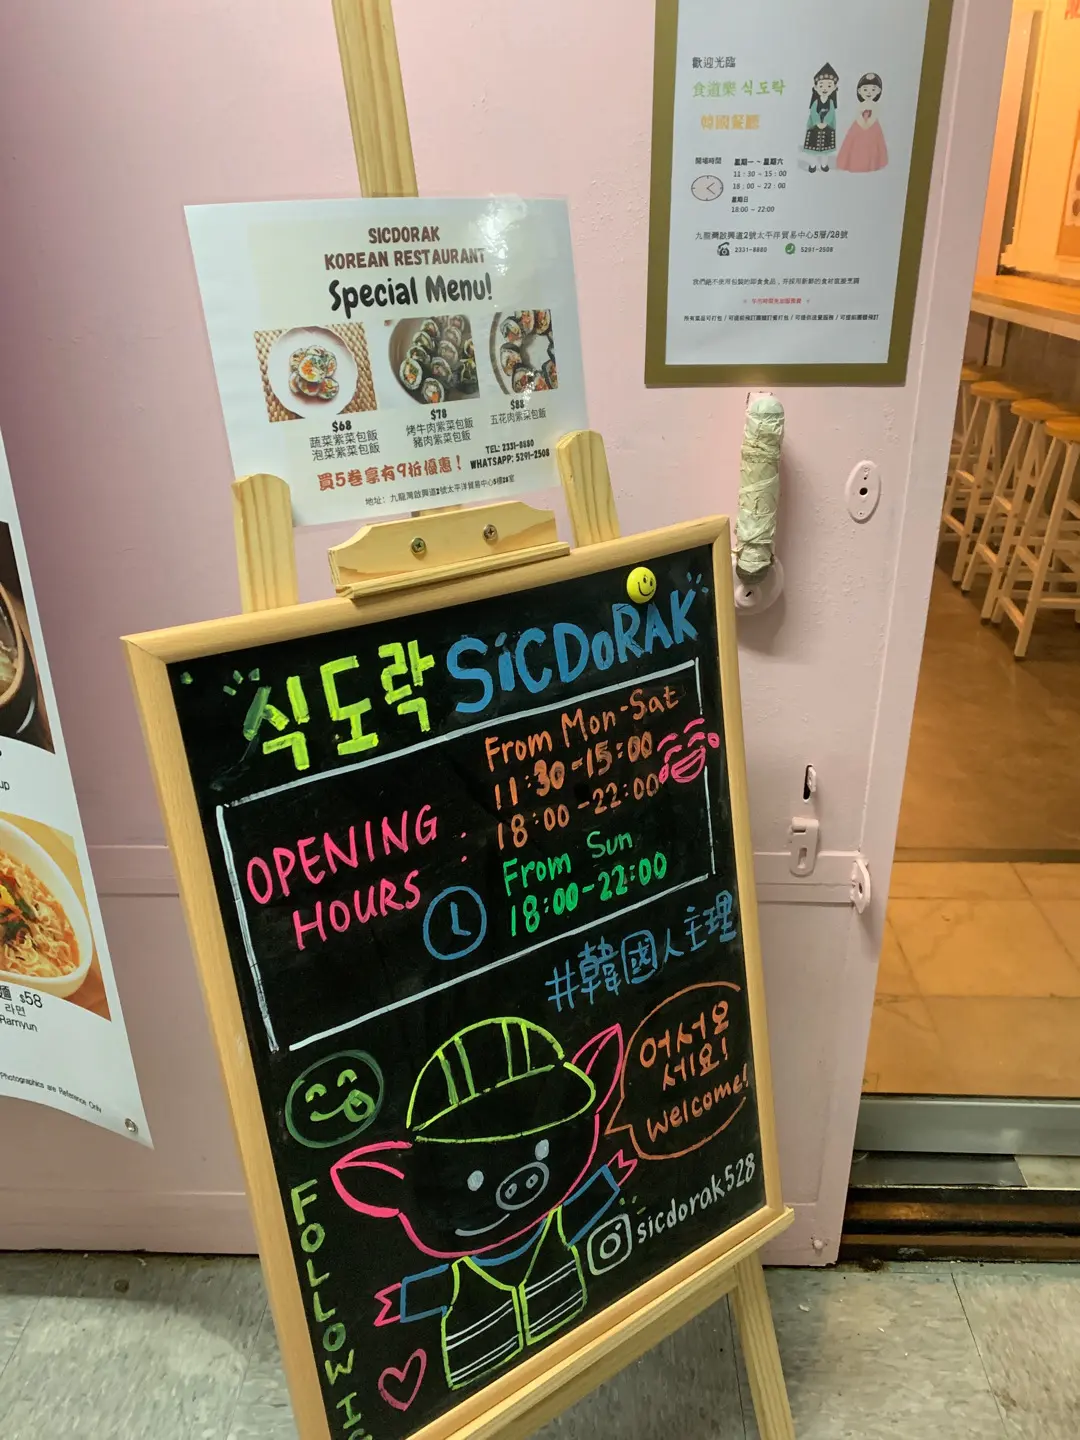 歡迎光臨
食道樂 식도락
韓國餐廳
開場時間
星期一 ~ 星期六
11:30 ~ 15:00
18:00 ~ 22:00
星期日
18:00 ~ 22:00
九龍灣啟興道2號太平洋貿易中心5層/28號
2331-8880
5291-2508
SICDORAK
KOREAN RESTAURANT
Special Menu!
$68
蔬菜紫菜包飯
泡菜紫菜包飯
$78
烤牛肉紫菜包飯
豬肉紫菜包飯
$88
五花肉紫菜包飯
買5卷享有9折優惠！
TEL: 2331-8880
WHATSAPP: 5291-2508
地址: 九龍灣啟興道2號太平洋貿易中心5樓28室
식도락 SiCDoRAK
OPENING HOURS :
From Mon-Sat
11:30-15:00
18:00-22:00
From Sun
18:00-22:00
#韓國人主理
어서오
세요!
Welcome!
sicdorak528
FOLLOW
up
麵 $58
라면
Ramyun
Photographics are Reference Only